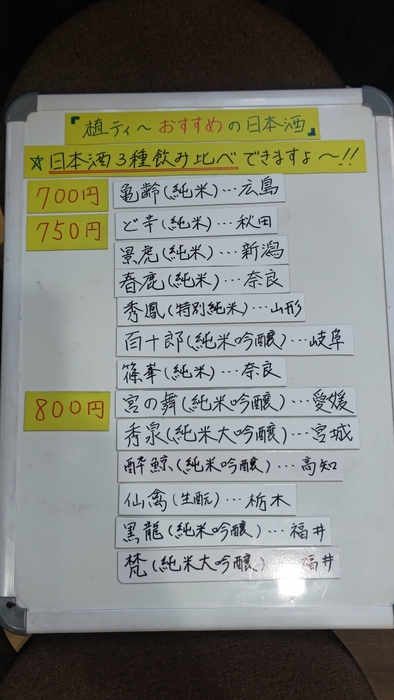 『植ティ～おすすめの日本酒』
☆日本酒3種飲み比べできますよ～!!
700円 亀齢(純米)…広島
750円 ど辛(純米)…秋田
景虎(純米)…新潟
春鹿(純米)…奈良
秀鳳(特別純米)…山形
百十郎(純米吟醸)…岐阜
篠峯(純米)…奈良
800円 宮の舞(純米吟醸)…愛媛
秀泉(純米大吟醸)…宮城
酔鯨(純米吟醸)…高知
仙禽(生酛)…栃木
黒龍(純米吟醸)…福井
梵(純米大吟醸)…福井